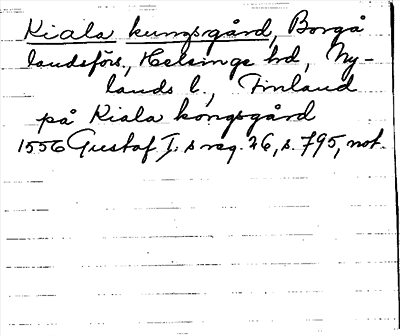 Kiala kungsgård, Borgå
landsförs., Helsinge hd, Ny-
lands l., Finland
på Kiala kongsgård
1556 Gustaf I:s reg. 26, s. 795, not.